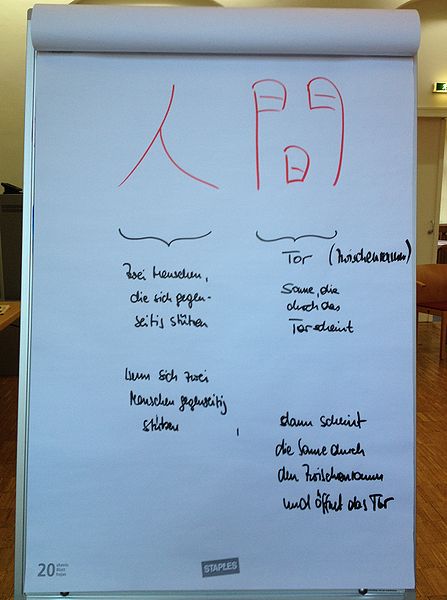 人間
Tor (Zwischenraum)
Zwei Menschen,
die sich gegen-
seitig stützen
Sonne, die
durch das
Tor scheint
Wenn sich zwei
Menschen gegenseitig
stützen ,
dann scheint
die Sonne durch
den Zwischenraum
und öffnet das Tor
20
STAPLES